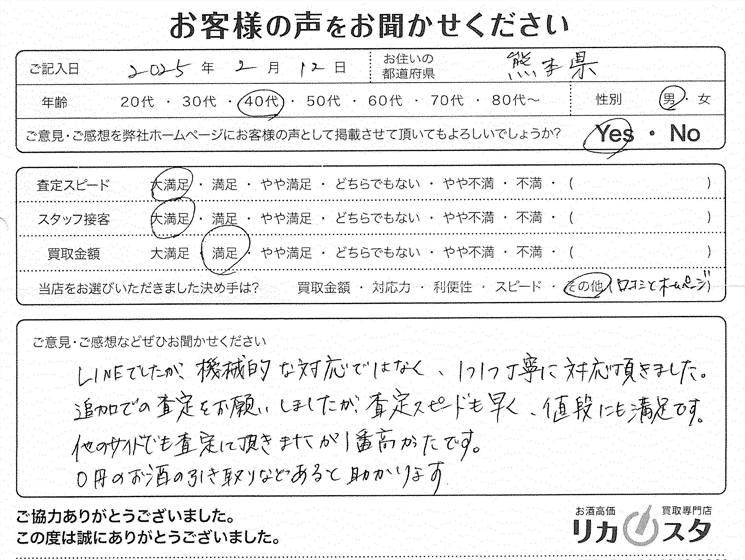 お客様の声をお聞かせください
ご記入日 2025 年 2 月 12 日 お住いの都道府県 熊本県
年齢 20代 ・ 30代 ・ 40代 ・ 50代 ・ 60代 ・ 70代 ・ 80代～ 性別 男 ・ 女
ご意見・ご感想を弊社ホームページにお客様の声として掲載させて頂いてもよろしいでしょうか? Yes ・ No
査定スピード 大満足 ・ 満足 ・ やや満足 ・ どちらでもない ・ やや不満 ・ 不満 ・ ( )
スタッフ接客 大満足 ・ 満足 ・ やや満足 ・ どちらでもない ・ やや不満 ・ 不満 ・ ( )
買取金額 大満足 ・ 満足 ・ やや満足 ・ どちらでもない ・ やや不満 ・ 不満 ・ ( )
当店をお選びいただきました決め手は? 買取金額 ・ 対応力 ・ 利便性 ・ スピード ・ その他 (口コミとホームページ)
ご意見・ご感想などぜひお聞かせください
LINEでしたが、機械的な対応ではなく、1つ1つ丁寧に対応頂きました。
追加での査定をお願いしましたが査定スピードも早く、値段にも満足です。
他のサイトでも査定して頂きましたが1番高かったです。
0円のお酒の引き取りなどあると助かります
ご協力ありがとうございました。
この度は誠にありがとうございました。
お酒高価 買取専門店
リカスタ